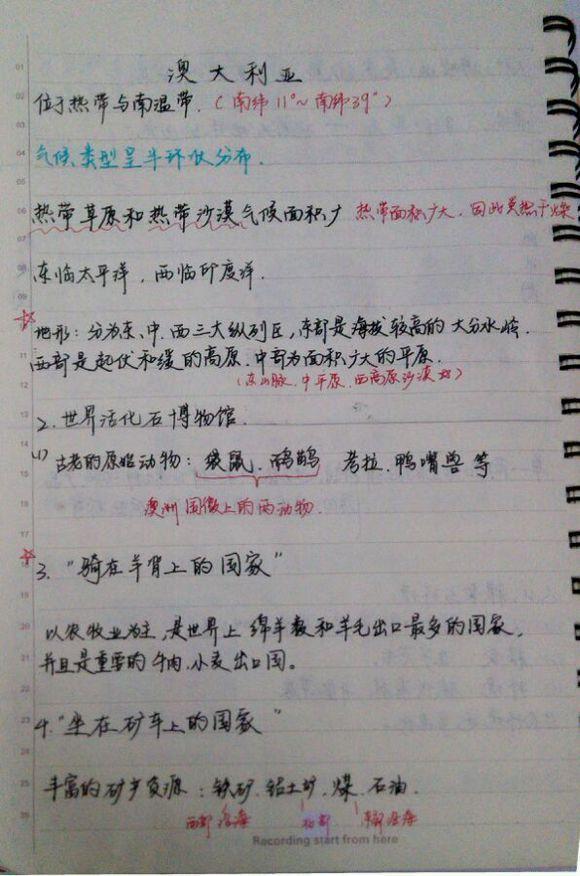 澳大利亚
位于热带与南温带.（南纬11°~南纬39°）
气候类型呈半环状分布.
热带草原和热带沙漠气候面积广 热带面积广大.因此炎热干燥
东临太平洋，西临印度洋.
☆地形：分为东、中、西三大纵列区，东部是海拔较高的大分水岭.
西部是起伏和缓的高原.中部为面积广大的平原.
（东山脉、中平原、西高原沙漠
2.世界活化石博物馆.
(1)古老的原始动物：袋鼠、鸸鹋 考拉、鸭嘴兽等
澳洲国徽上的两动物.
☆
3."骑在羊背上的国家"
以农牧业为主，是世界上绵羊数和羊毛出口最多的国家，
并且是重要的牛肉、小麦出口国。
4."坐在矿车上的国家"
丰富的矿产资源：铁矿、铝土矿、煤、石油.
西部沿海 北部 东部沿海
Recording start from here